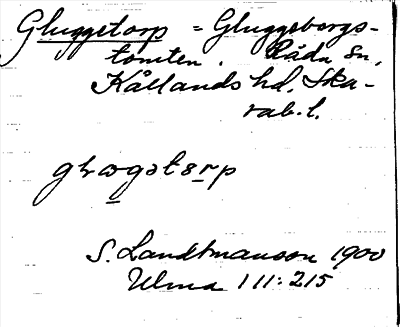 Gluggetorp = Gluggeborgs-
tomten. Råda sn,
Kållands hd, Ska-
rab. l.
S. Landtmanson 1900
Ulma 111:215